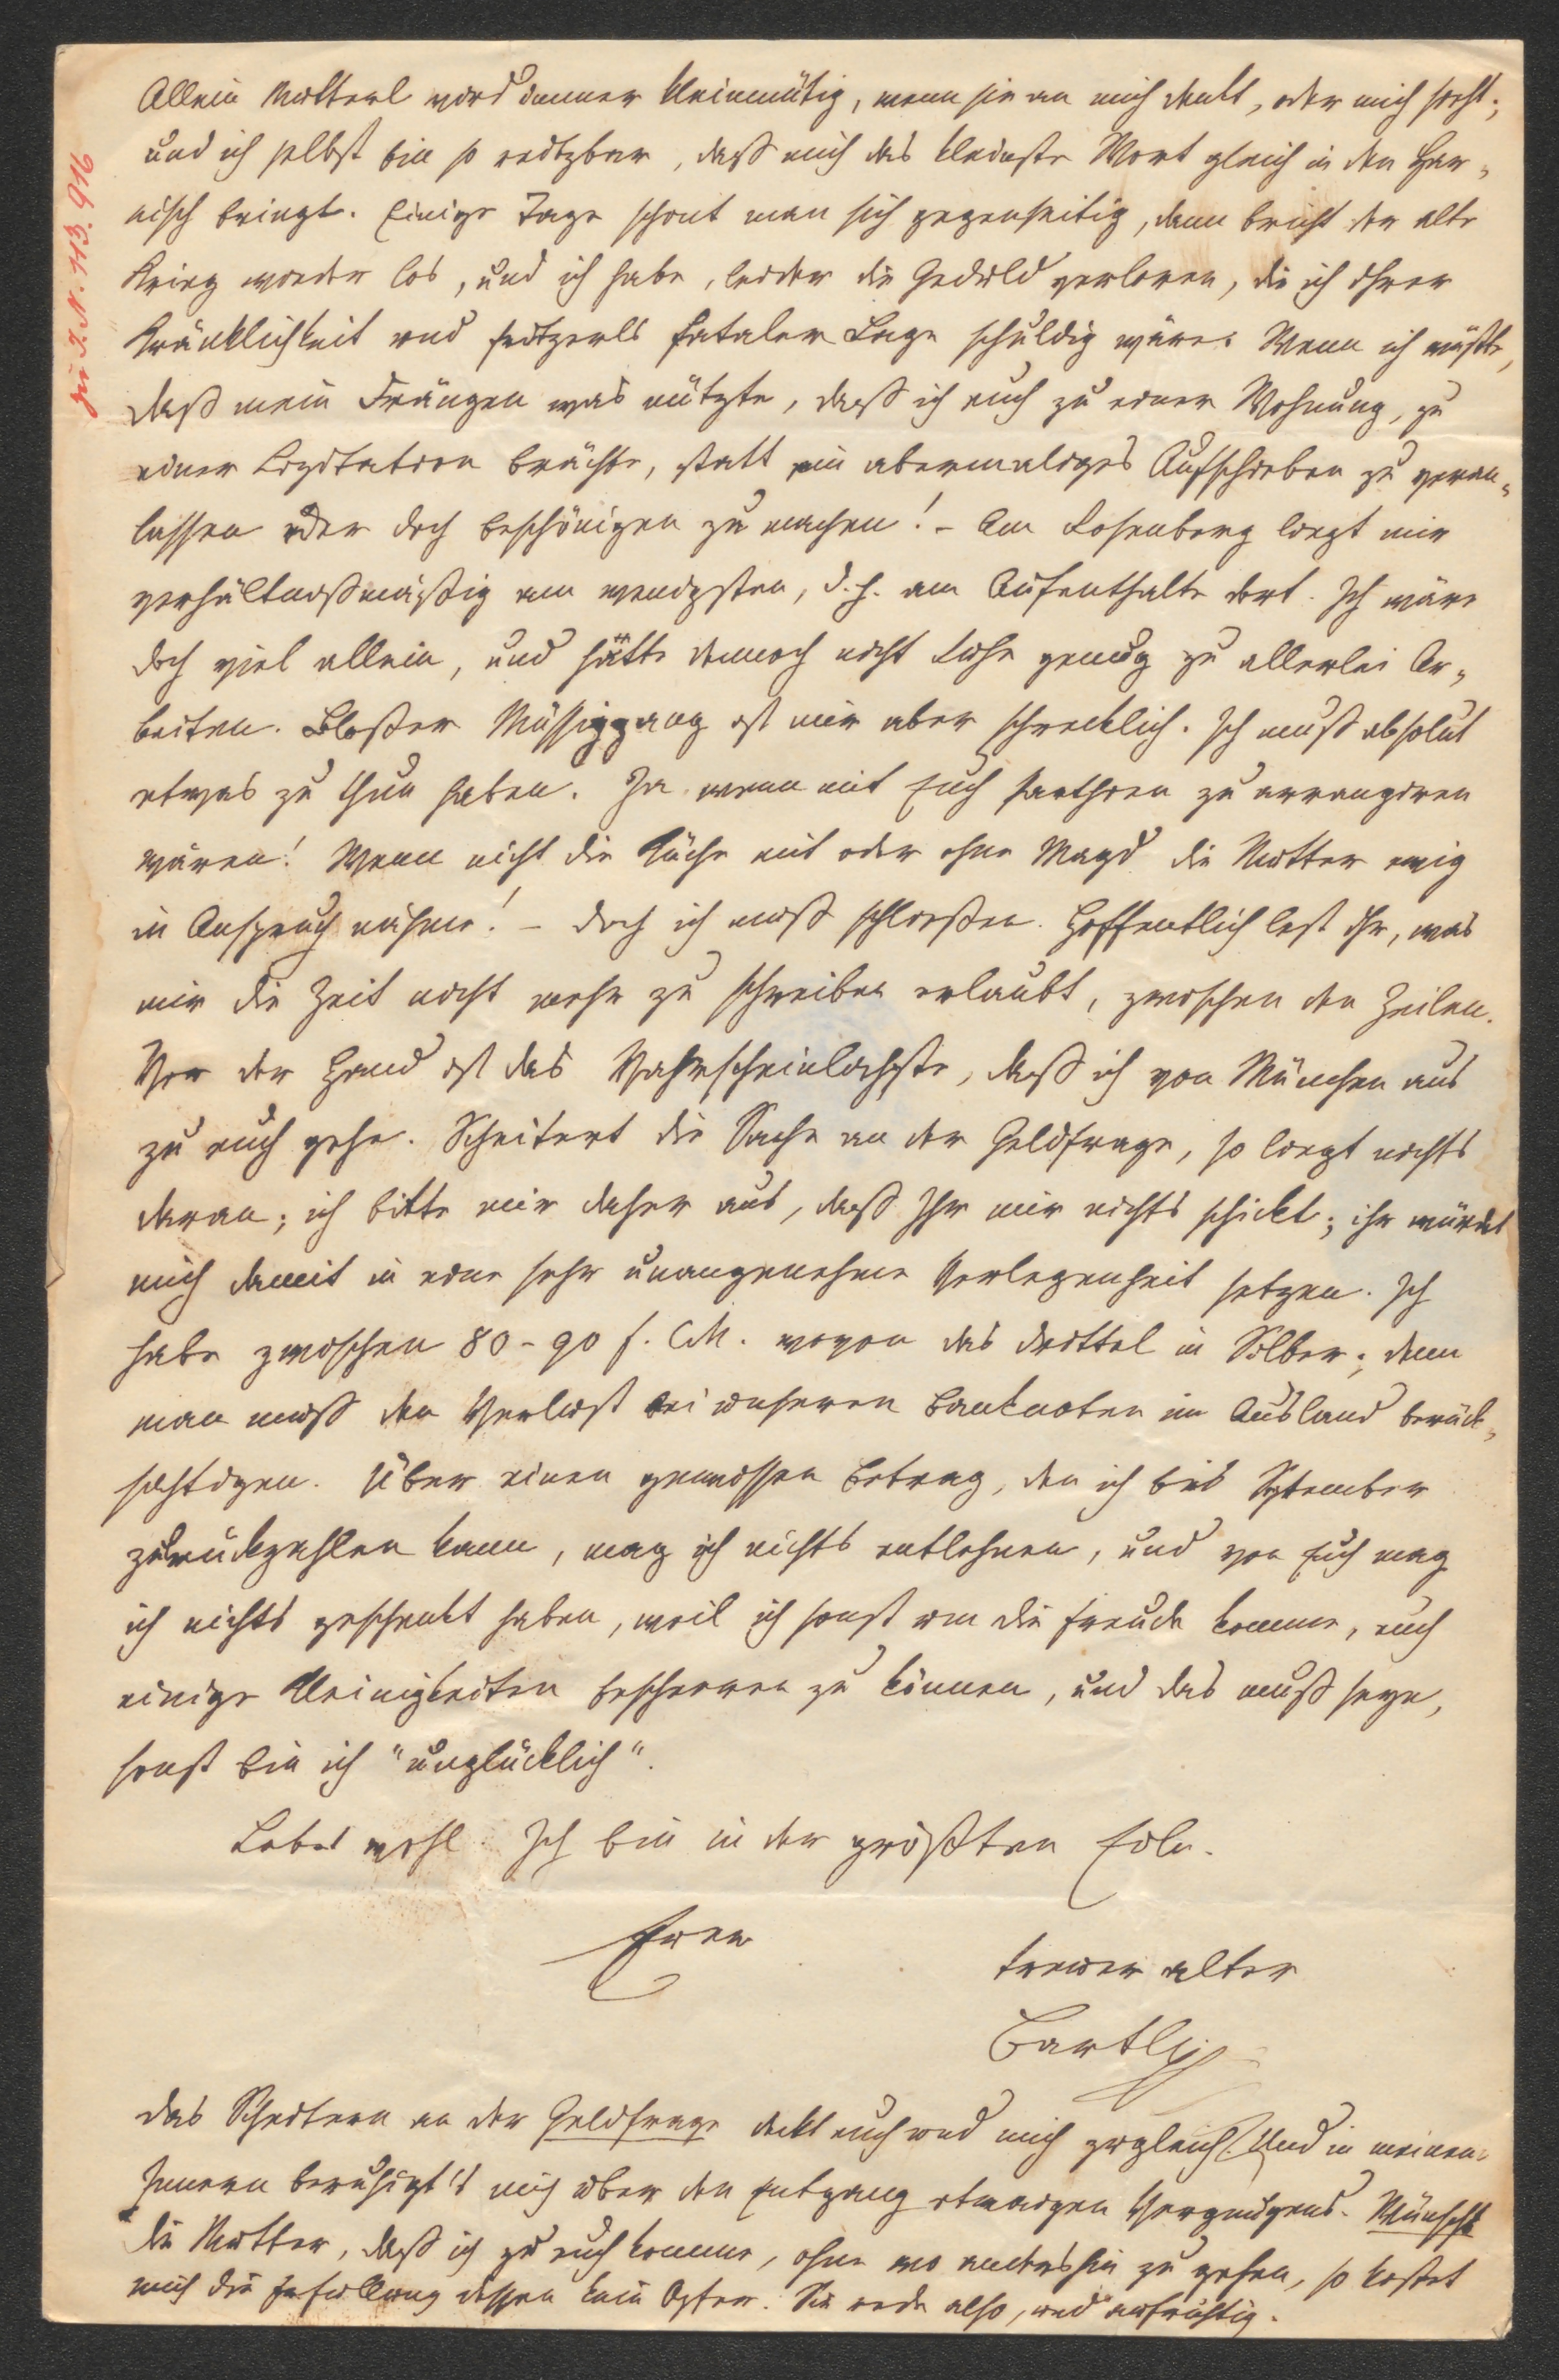 Allein Mutterl wird immer kleinmütig, wenn sie an mich denkt, oder mich sieht;
und ich selbst bin so reitzbar, daß mich das kleinste Wort gleich in den Har=
nisch bringt. Einige Tage schont man sich gegenseitig, dann bricht der alte
Krieg wieder los, und ich habe, leider die Geduld verloren, die ich ihrer
Kränklichkeit und Fritzerls fataler Lage schuldig wäre. Wenn ich wüßte,
daß mein Drängen was nützte, daß ich euch zu einer Wohnung, zu
einer Lizitation brächte, statt ein abermaliges Aufschieben zu veran=
lassen oder doch beschönigen zu machen! - Am Rosenberg liegt mir
verhältnißmäßig am wenigsten, d. h. am Aufenthalte dort. Ich wäre
doch viel allein, und hätte dennoch nicht Ruhe genug zu allerlei Ar=
beiten. Bloßer Müssiggang ist mir aber schrecklich. Ich muß absolut
etwas zu thun haben. Ja wenn mit Euch Parthien zu arrangiren
wären! Wenn nicht die Küche mit oder ohne Magd die Mutter ewig
in Anspruch nähme! - Doch ich muß schließen. Hoffentlich lest Ihr, was
mir die Zeit nicht mehr zu schreiben erlaubt, zwischen den Zeilen.
Vor der Hand ist das Wahrscheinlichste, daß ich von München aus
zu euch gehe. Scheitert die Sache an der Geldfrage, so liegt nichts
daran; ich bitte mir daher aus, daß Ihr mir nichts schickt; ihr würdet
mich damit in eine sehr unangenehme Verlegenheit setzen. Ich
habe zwischen 80-90 f. CM. wovon das Drittel in Silber; denn
man muß den Verlust bei unseren Banknoten im Ausland berück=
sichtigen. Über einen gewissen Betrag, den ich bis September
zurückzahlen kann, mag ich nichts entlehnen, und von Euch mag
ich nichts geschenkt haben, weil ich sonst um die Freude komme, euch
einige Kleinigkeiten bescheeren zu können, und das muß seyn,
sonst bin ich "unglücklich".
Lebet wohl. Ich bin in der größten Eile.
Euer
treuer alter
Bartl
Das Scheitern an der Geldfrage deckt euch und mich zugleich. Und in meinem
Innern beruhigt's mich über den Entgang etwaigen Vergnügens. Wünscht
die Mutter, daß ich zu euch komme, ohne wo anders hin zu gehen, so kostet
mich die Erfüllung dessen kein Opfer. Sie rede also, und aufrichtig.
zu I. N. 113.916